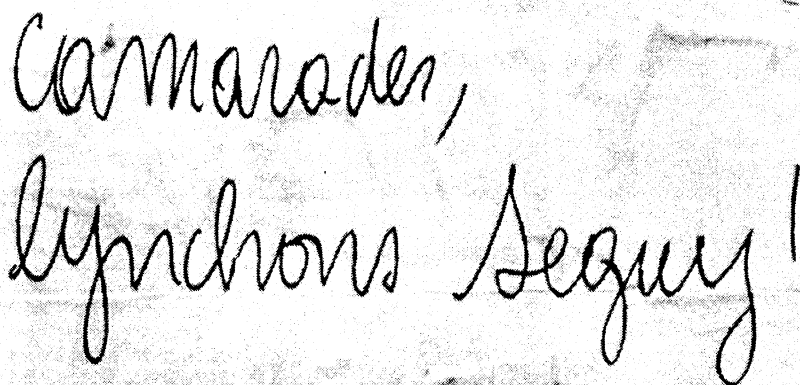 Camarades,
lynchons Seguy!